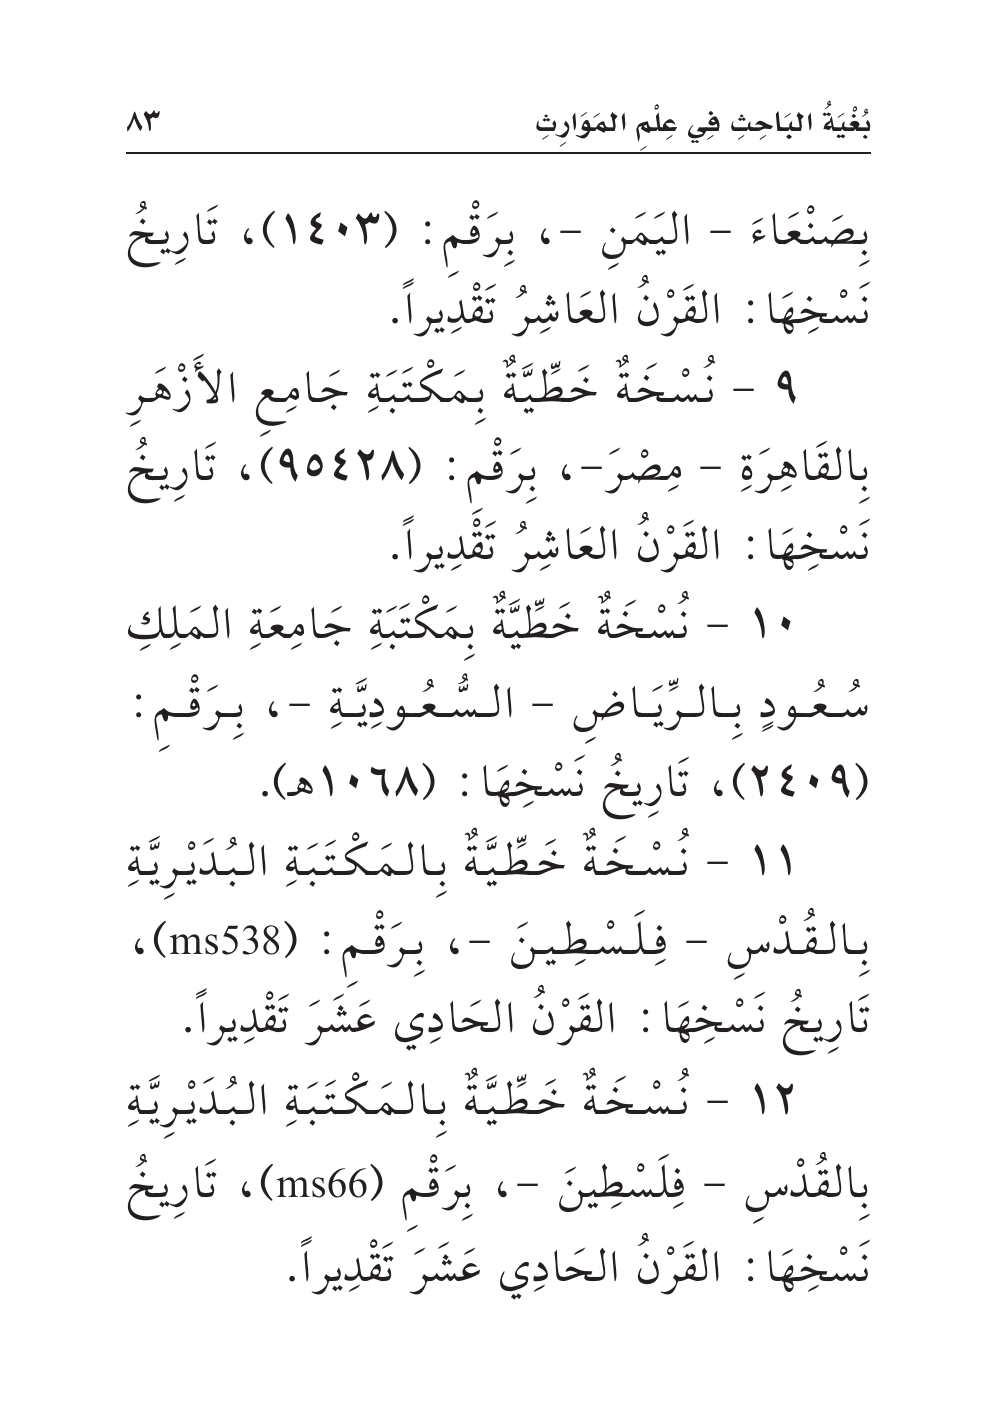 بُغْيَةُ البَاحِثِ فِي عِلْمِ المَوَارِثِ ٨٣
بِصَنْعَاءَ – اليَمَنِ –، بِرَقْمِ: (١٤٠٣)، تَارِيخُ
نَسْخِهَا: القَرْنُ العَاشِرُ تَقْدِيراً.
٩ – نُسْخَةٌ خَطِّيَّةٌ بِمَكْتَبَةِ جَامِعِ الأَزْهَرِ
بِالقَاهِرَةِ – مِصْرَ–، بِرَقْمِ: (٩٥٤٢٨)، تَارِيخُ
نَسْخِهَا: القَرْنُ العَاشِرُ تَقْدِيراً.
١٠ – نُسْخَةٌ خَطِّيَّةٌ بِمَكْتَبَةِ جَامِعَةِ المَلِكِ
سُعُودٍ بِالرِّيَاضِ – السُّعُودِيَّةِ –، بِرَقْمِ:
(٢٤٠٩)، تَارِيخُ نَسْخِهَا: (١٠٦٨هـ).
١١ – نُسْخَةٌ خَطِّيَّةٌ بِالمَكْتَبَةِ البُدَيْرِيَّةِ
بِالقُدْسِ – فِلَسْطِينَ –، بِرَقْمِ: (ms538)،
تَارِيخُ نَسْخِهَا: القَرْنُ الحَادِي عَشَرَ تَقْدِيراً.
١٢ – نُسْخَةٌ خَطِّيَّةٌ بِالمَكْتَبَةِ البُدَيْرِيَّةِ
بِالقُدْسِ – فِلَسْطِينَ –، بِرَقْمِ (ms66)، تَارِيخُ
نَسْخِهَا: القَرْنُ الحَادِي عَشَرَ تَقْدِيراً.